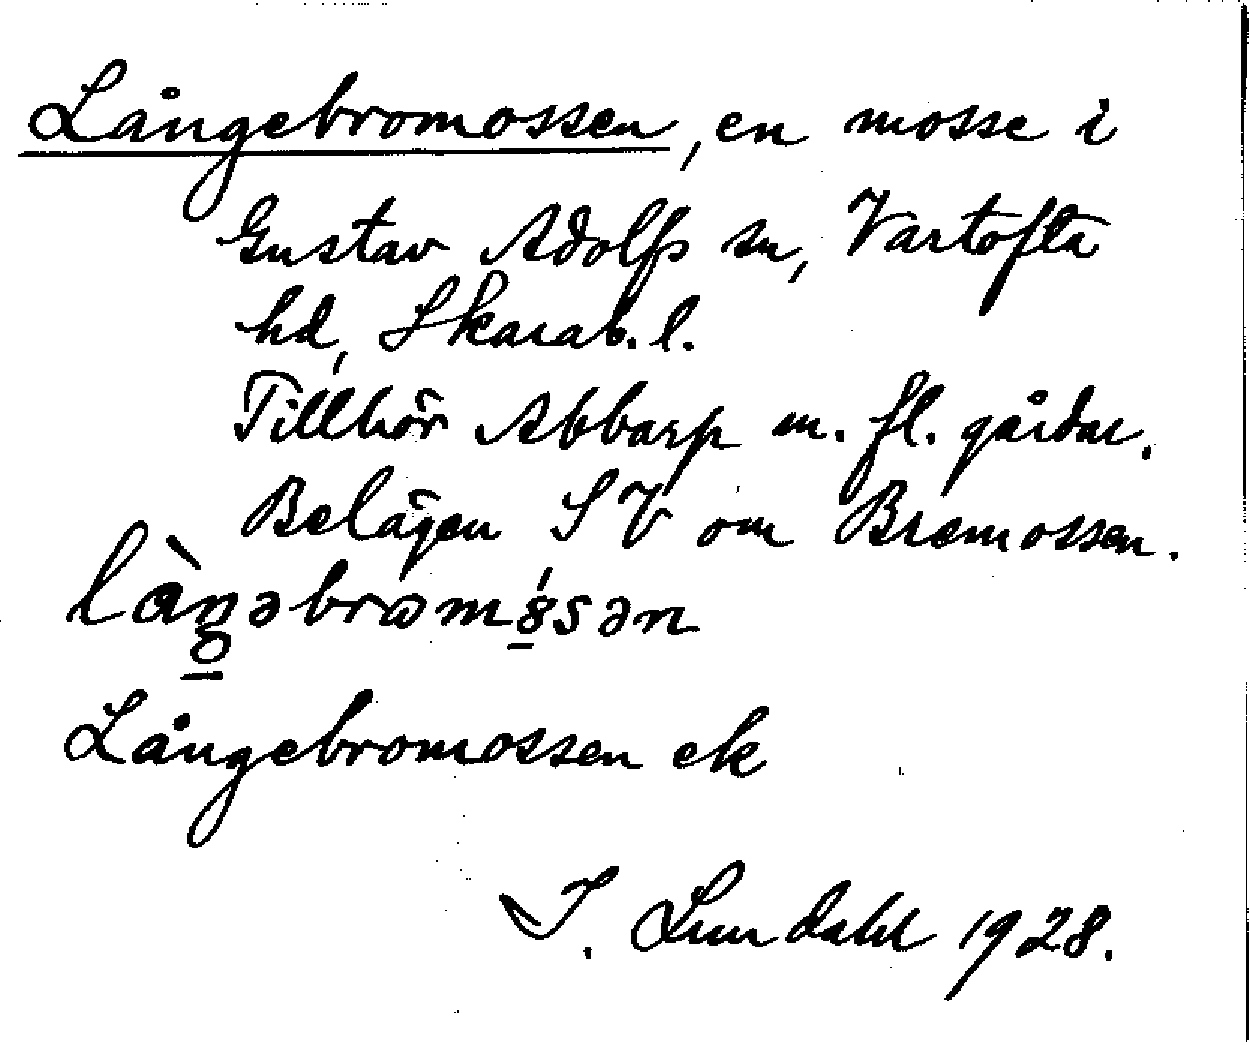 Långebromossen, en mosse i
Gustav Adolfs sn, Vartofta
hd, Skarab. l.
Tillhör Abbarp m. fl. gårdar.
Belägen SV om Bremossen.
Långebromossen ek
I. Lundahl 1928.